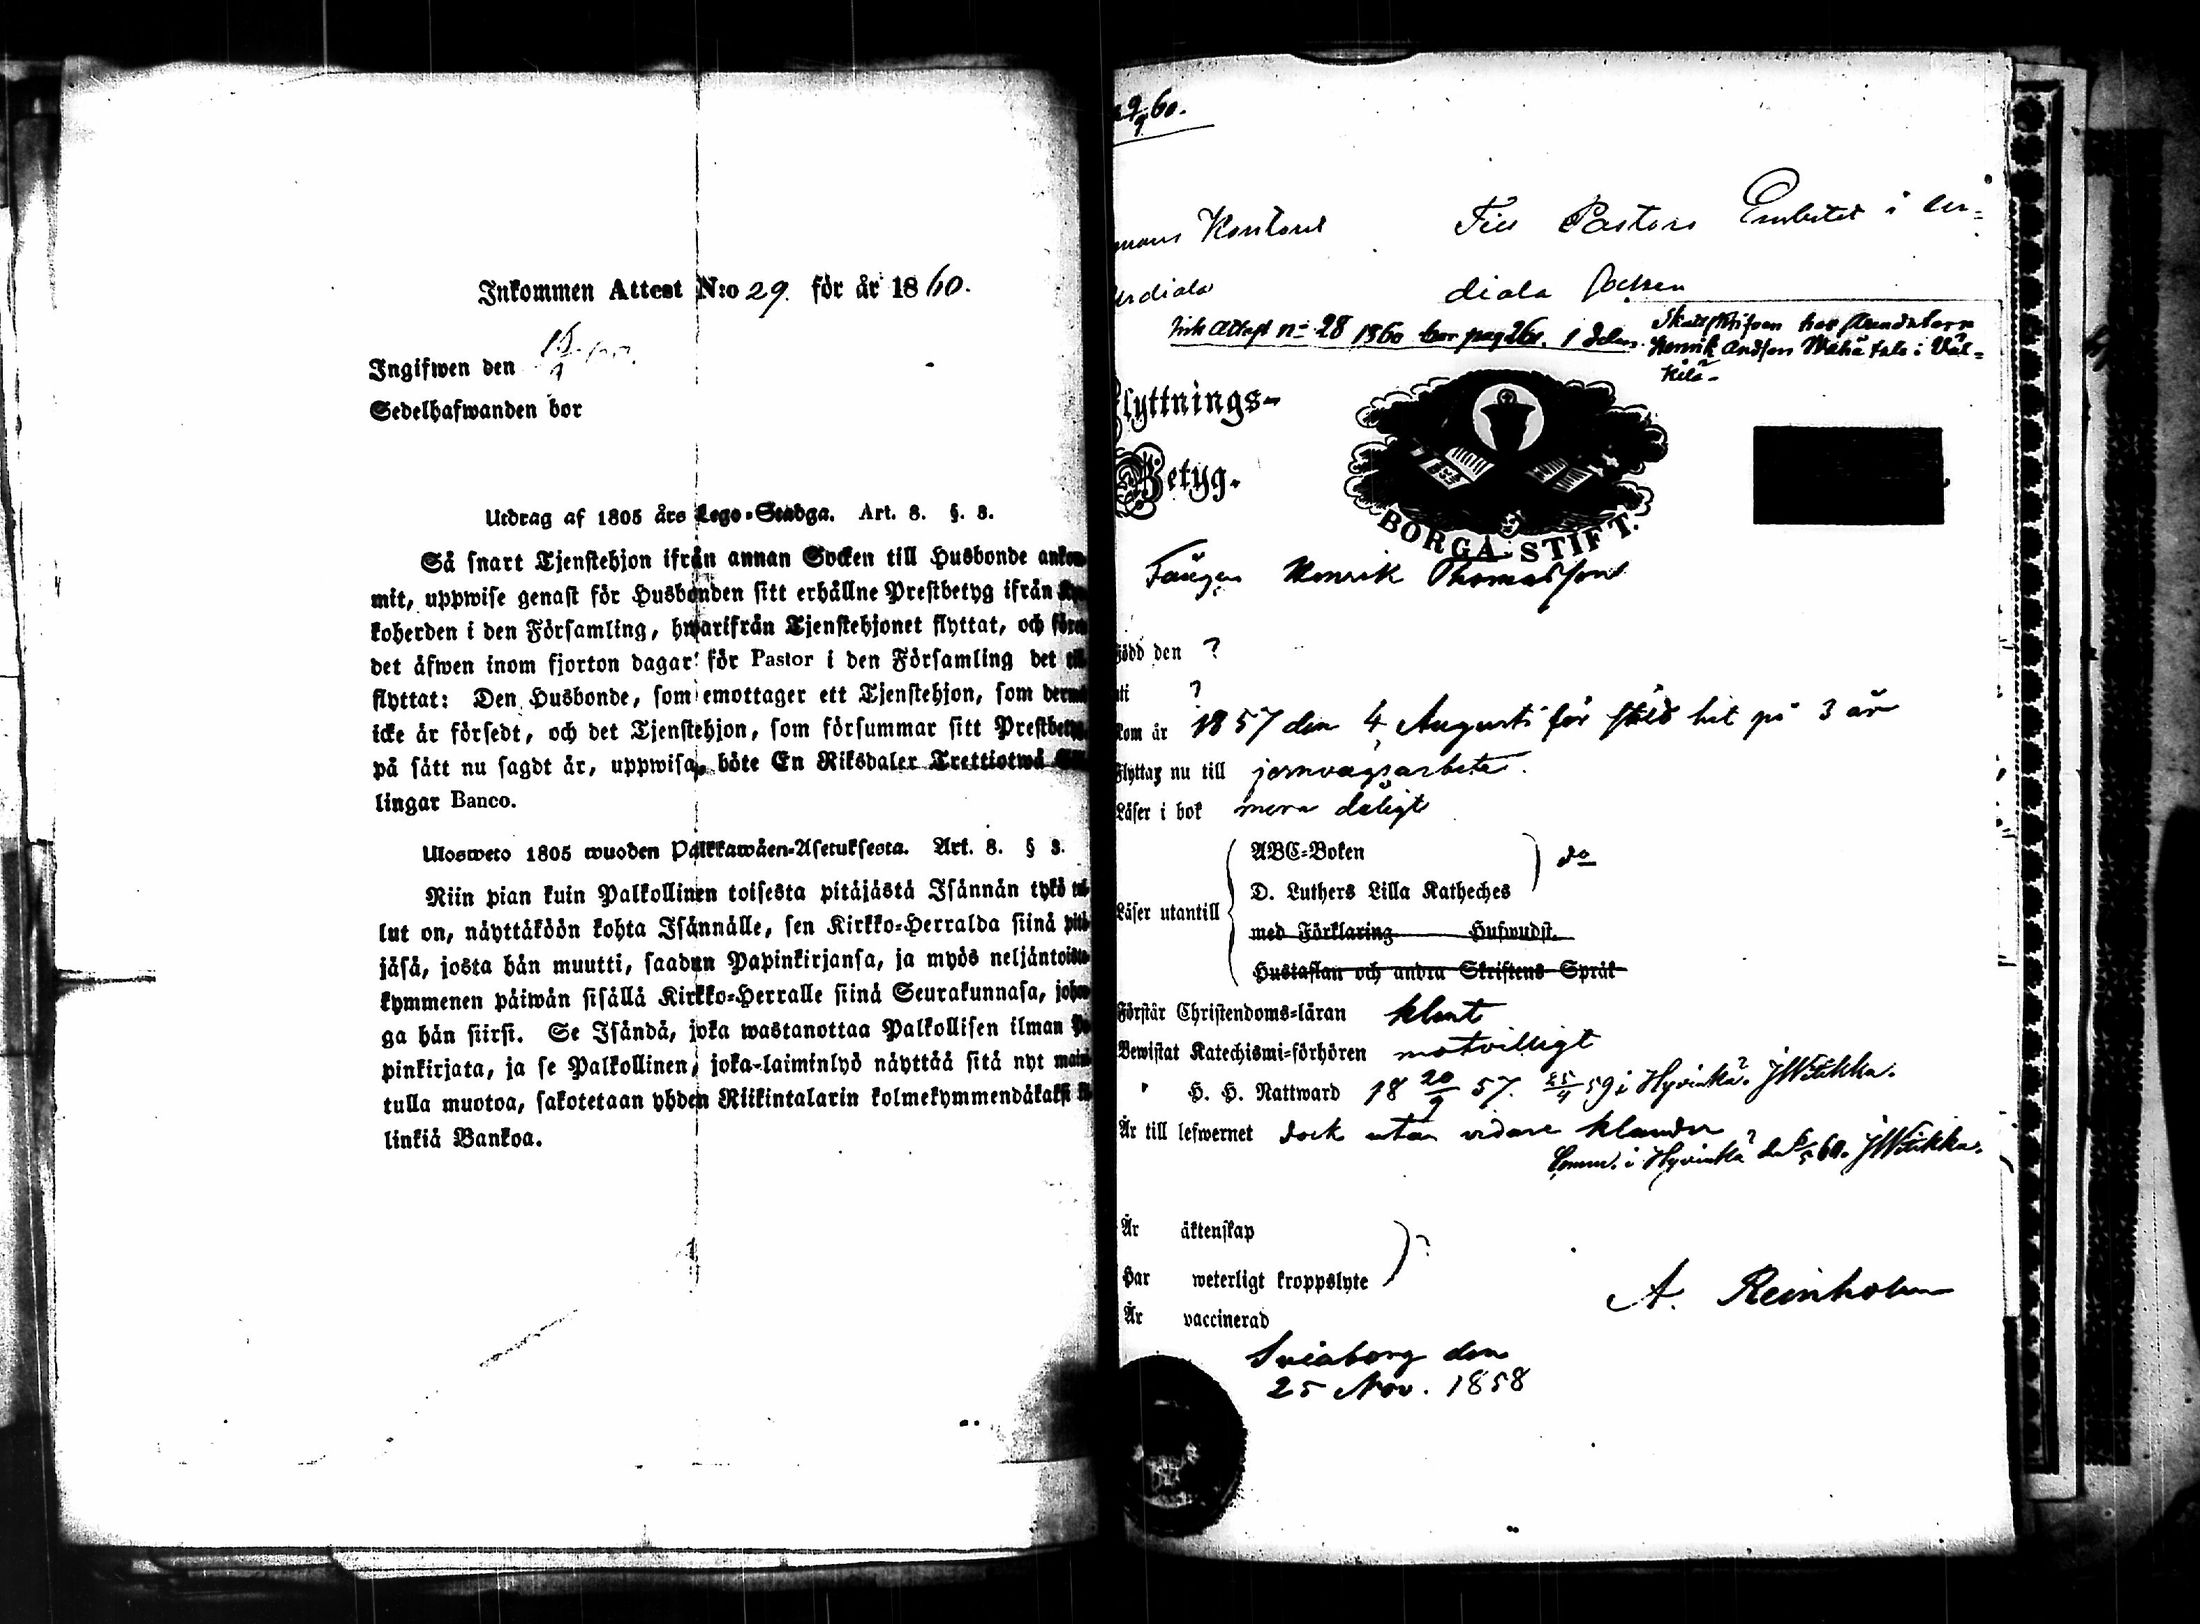 Inkommen Attest N:o 29. för år 1860.
Ingifwen den
Sedelhafwanden bor
Utdrag af 1805 års Lego-Stadga. Art. 8. §. 3.
Så snart Tjenstehjon ifrån annan Socken till Husbonde ankom-
mit, uppwise genast för Husbonden sitt erhållne Prestbetyg ifrån
koherden i den Församling, hwarifrån Tjenstehjonet flyttat, och före
det äfwen inom fjorton dagar för Pastor i den Församling det till
flyttat: Den Husbonde, som emottager ett Tjenstehjon, som dermed
icke är försedt, och det Tjenstehjon, som försummar sitt Prestbetyg
på sätt nu sagdt är, uppwisa, böte En Riksdaler Trettiotwå
lingar Banco.
Ulosweto 1805 wuoden Palkkawäen-Asetuksesta. Art. 8. § 3.
Niin pian kuin Palkollinen toisesta pitäjästä Isännän tykö tul-
lut on, näyttäköön kohta Isännälle, sen Kirkko-Herralda siinä pitä-
jäsä, josta hän muutti, saadun Papinkirjansa, ja myös neljäntoista-
kymmenen päiwän sisällä Kirkko-Herralle siinä Seurakunnasa, johon-
ga hän siirsi. Se Isändä, joka wastanottaa Palkollisen ilman Pa-
pinkirjata, ja se Palkollinen, joka laiminlyö näyttää sitä nyt maini-
tulla muotoa, sakotetaan yhden Riikintalarin kolmekymmendäkaksi kil-
linkiä Bankoa.
60.
Kontors Till Pastors Embetet i Ur=
Urdiala diala Socken
Attest n= 28 1860 bor pag 261.
Henrik Andsson
kilä-
Flyttnings-
Betyg.
BORGÅ STIFT.
Fången Henrik Thomasson
Född den ?
uti ?
Kom år 1857 den 4 Augusti för stöld hit på 3 år
Flyttar nu till jernvägsarbete.
Läser i bok mera dåligt
Läser utantill
ABC-Boken
D. Luthers Lilla Katheches do
med Förklaring Hufwudst.
Hustaflan och andra Skriftens Språk
Förstår Christendoms-läran klent
Bewistat Katechismi-förhören motvilligt
" H. H. Nattward 18 20/9 57. 25/4 59 i Hyvinkä. J Wikka.
Är till lefwernet dock utan vidare klander
Comm. i Hyvinkä 60. J Wikka.
Är äktenskap
Har weterligt kroppslyte ?
Är vaccinerad
A. Reinholm
Sveaborg den
25 Nov. 1858